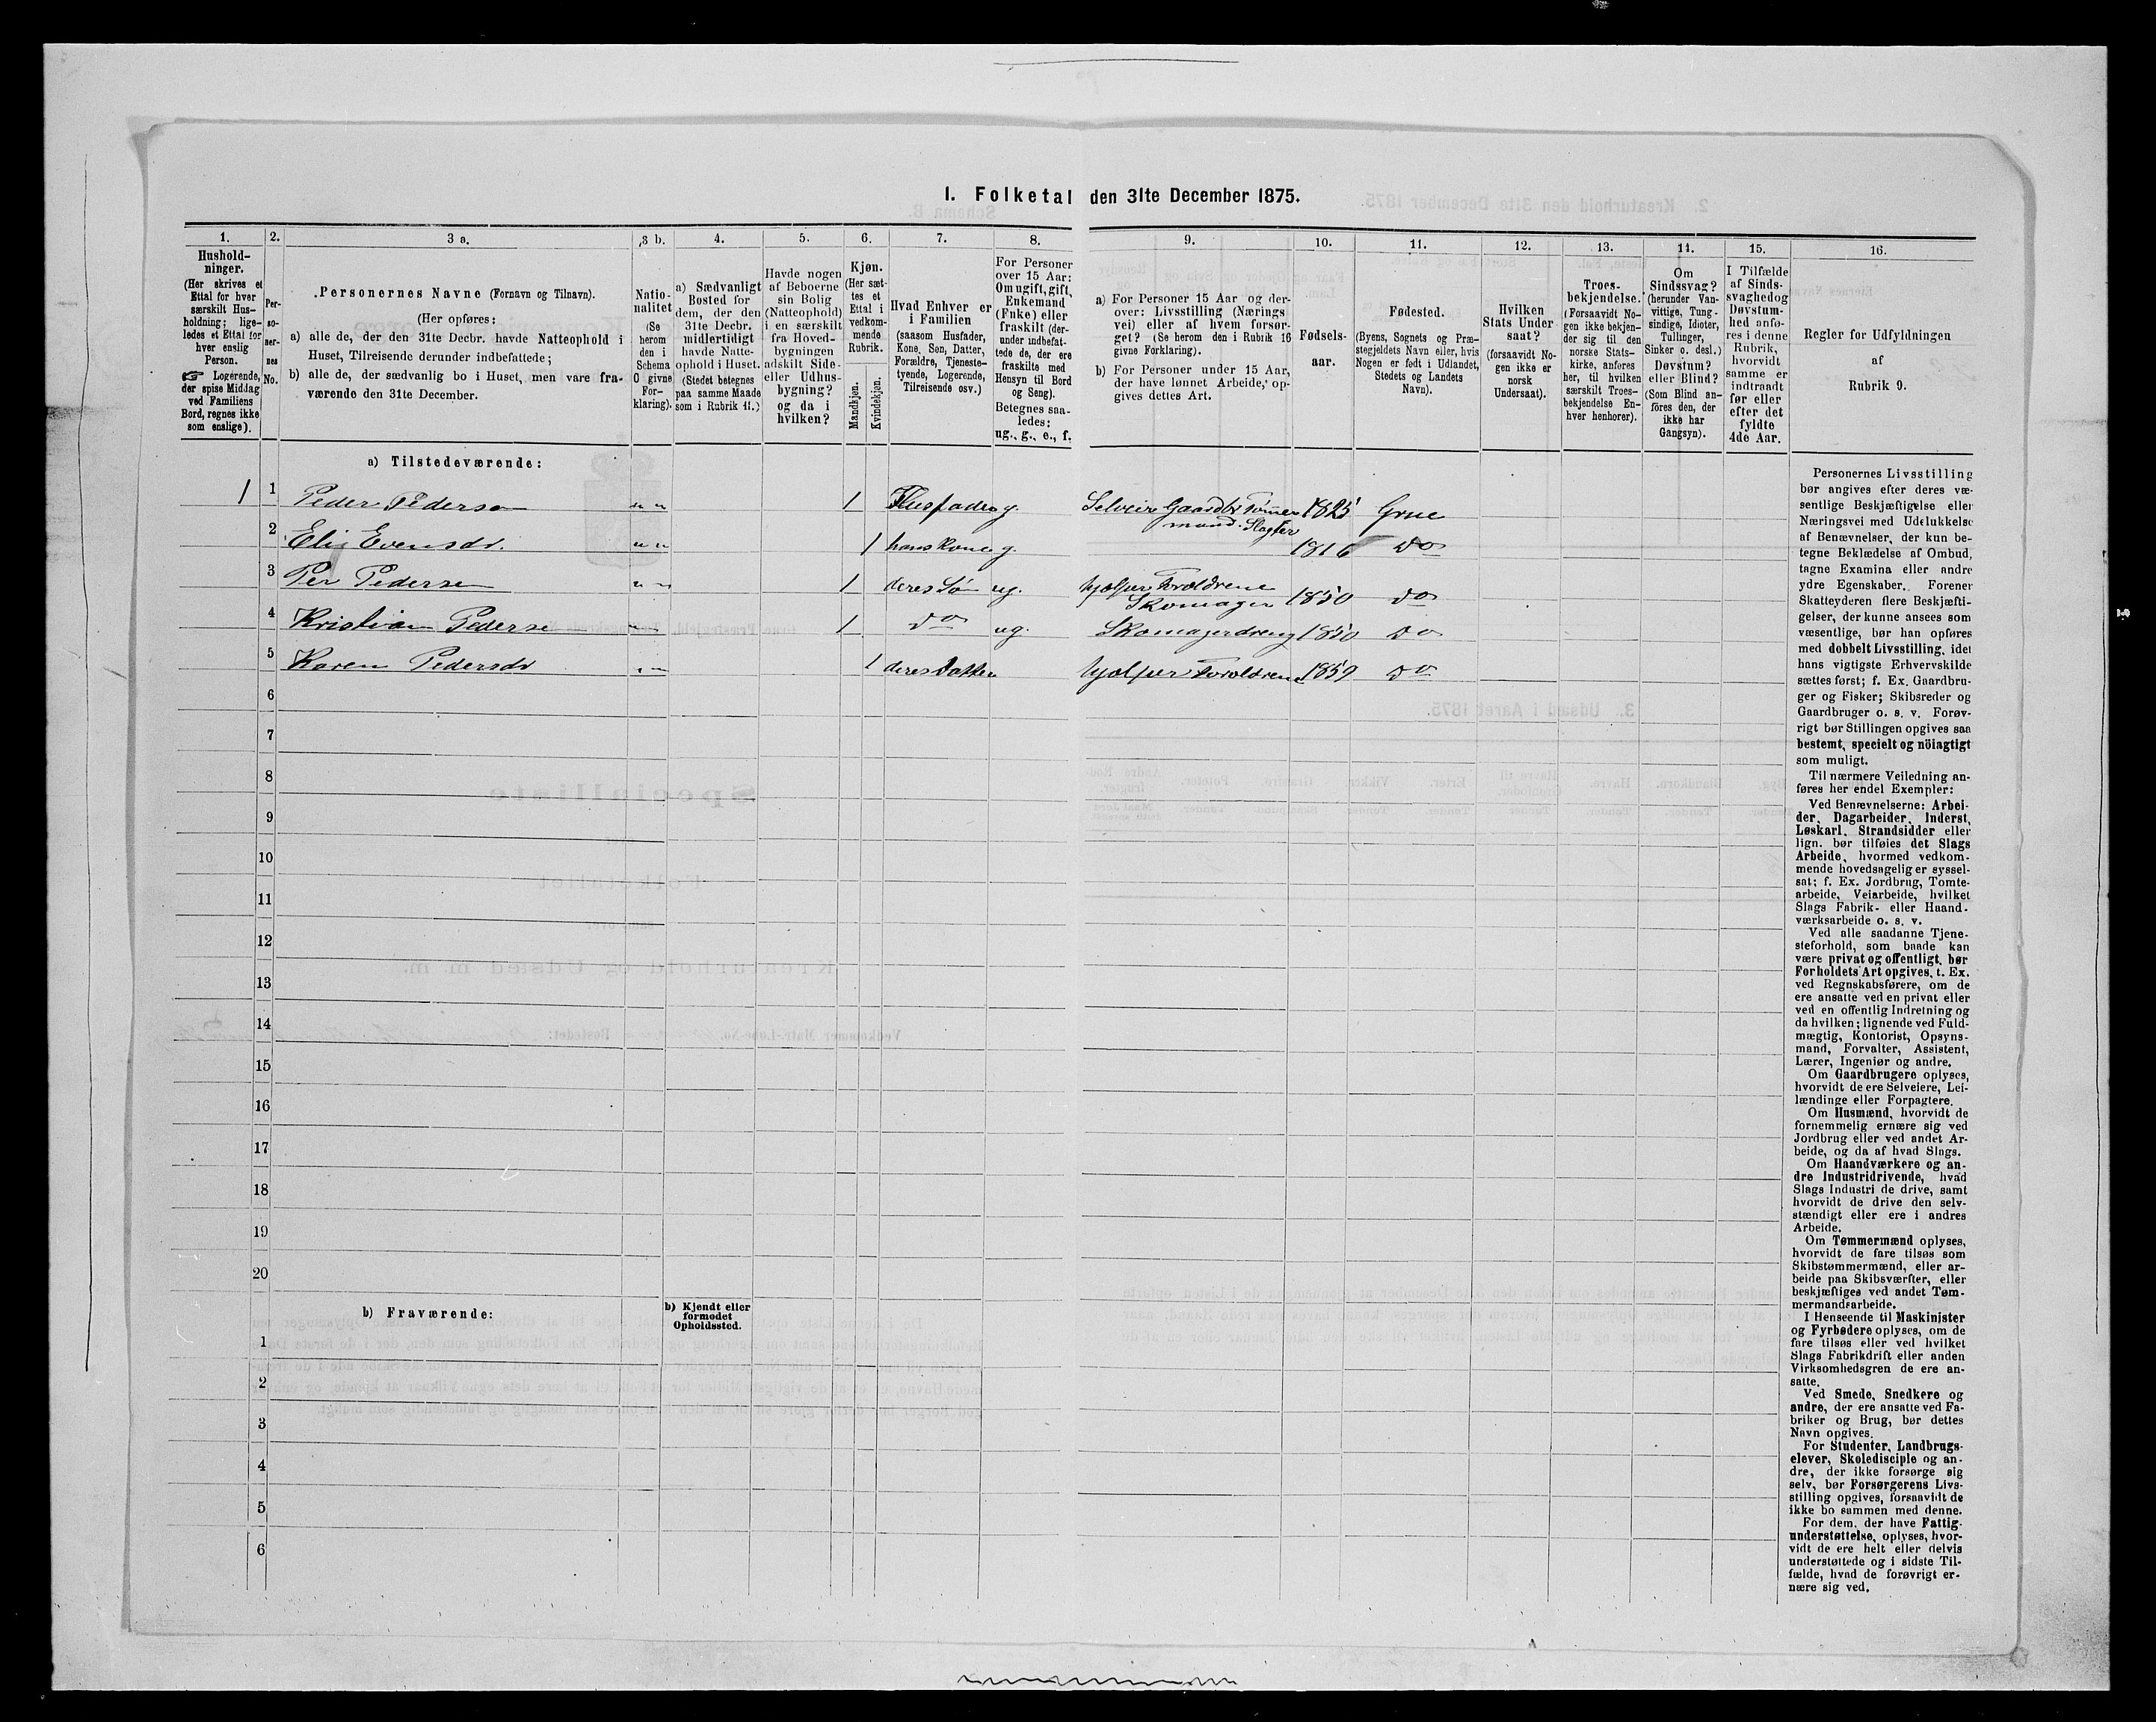 I. Folketal den 31te December 1875.
1.
2.
3 a.
3 b.
4.
5.
6.
7.
8.
9.
10.
11.
12.
13.
14.
15.
16.
Hushold-
ninger.
(Her skrives et
Ettal for hver
særskilt Hus-
holdning; lige-
ledes et Ettal for
hver enslig
Person.
☞ Logerende,
der spise Middag
ved Familiens
Bord, regnes ikke
som enslige).
Per-
so-
ner-
nes
No.
Personernes Navne (Fornavn og Tilnavn).
(Her opføres:
a) alle de, der den 31te Decbr. havde Natteophold i
Huset, Tilreisende derunder indbefattede;
b) alle de, der sædvanlig bo i Huset, men vare fra-
værende den 31te December.
Natio-
nalitet
(Se
herom
den i
Schema
O givne
For-
klaring).
a) Sædvanligt
Bosted for
dem, der den
31te Decbr.
midlertidigt
havde Natte-
ophold i Huset.
(Stedet betegnes
paa samme Maade
som i Rubrik 11.)
Havde nogen
af Beboerne
sin Bolig
(Natteophold)
i en særskilt
fra Hoved-
bygningen
adskilt Side-
eller Udhus-
bygning?
og da i
hvilken?
Kjøn.
(Her sæt-
tes et
Ettal i
vedkom-
mende
Rubrik.
Mandkjøn.
Kvindekjøn.
Hvad Enhver er
i Familien
(saasom Husfader,
Kone, Søn, Datter,
Forældre, Tjeneste-
tyende, Logerende,
Tilreisende osv.)
For Personer
over 15 Aar:
Om ugift, gift,
Enkemand
(Enke) eller
fraskilt (der-
under indbefat-
tede de, der ere
fraskilte med
Hensyn til Bord
og Seng).
Betegnes saa-
ledes:
ug., g., e., f.
a) For Personer 15 Aar og der-
over: Livsstilling (Nærings
vei) eller af hvem forsør-
get? (Se herom den i Rubrik 16
givne Forklaring).
b) For Personer under 15 Aar,
der have lønnet Arbeide, op-
gives dettes Art.
Fødsels-
aar.
Fødested.
(Byens, Sognets og Præ-
stegjeldets Navn eller, hvis
Nogen er født i Udlandet,
Stedets og Landets
Navn).
Hvilken
Stats Under
saat?
(forsaavidt No-
gen ikke er
norsk
Undersaat).
Troes-
bekjendelse.
(Forsaavidt No-
gen ikke bekjen-
der sig til den
norske Stats-
kirke, anføres
her, til hvilken
særskilt Troes-
bekjendelse En-
hver henhorer).
Om
Sindssvag?
(herunder Van-
vittige, Tung-
sindige, Idioter,
Tullinger,
Sinker o. desl.)
Døvstum?
eller Blind?
(Som Blind an-
föres den, der
ikke har
Gangsyn).
I Tilfælde
af Sinds-
svaghedog
Døvstum-
hed anfø-
res i denne
Rubrik,
hvorvidt
samme er
indtraadt
før eller
efter det
fyldte
4de Aar.
Regler for Udfyldningen
af
Rubrik 9.
a) Tilstedeværende:
1 1 Peder Pedersen 1 Husfader g. Selveier Gaardbr Tømmer 1825 Grue
mand. Slagter
2 Eli Evensdr. 1 hans Kone g. 1816 do
3 Per Pedersen 1 deres Søn ug. hjælper Forældrene
Skomager 1850 do
4 Kristian Pedersen 1 do ug. Skomagerdreng 1850 do
5 Karen Pedersdr 1 deres Datter hjælper Forældrene 1859 do
6
7
8
9
10
11
12
13
14
15
16
17
18
19
20
b) Fraværende:
b) Kjendt eller
formodet
Opholdssted.
1
2
3
4
5
6
Personernes Livsstilling
bør angives efter deres væ-
sentlige Beskjæftigelse eller
Næringsvei med Udelukkelse
af Benævnelser, der kun be-
tegne Beklædelse af Ombud,
tagne Examina eller andre
ydre Egenskaber. Forener
Skatteyderen flere Beskjæfti-
gelser, der kunne ansees som
væsentlige, bør han opføres
med dobbelt Livsstilling, idet
hans vigtigste Erhvervskilde
sættes først; f. Ex. Gaardbru-
ger og Fisker; Skibsreder og
Gaardbruger o. s. v. Forøv-
rigt bør Stillingen opgives saa
bestemt, specielt og nöiagtigt
som muligt.
Til nærmere Veiledning an-
føres her endel Exempler:
Ved Benævnelserne: Arbei-
der, Dagarbeider, Inderst,
Løskarl, Strandsidder eller
lign. bør tilføies det Slags
Arbeide, hvormed vedkom-
mende hovedsagelig er syssel-
sat; f. Ex. Jordbrug, Tomte-
arbeide, Veiarbeide, hvilket
Slags Fabrik- eller Haand-
værksarbeide o. s. v.
Ved alle saadanne Tjene-
steforhold, som baade kan
være privat og offentligt, bør
Forholdets Art opgives, t. Ex.
ved Regnskabsførere, om de
ere ansatte ved en privat eller
ved en offentlig Indretning og
da hvilken; lignende ved Fuld-
mægtig, Kontorist, Opsyns-
mand, Forvalter, Assistent,
Lærer, Ingeniør og andre.
Om Gaardbrugere oplyses,
hvorvidt de ere Selveiere, Lei-
lændinge eller Forpagtere.
Om Husmænd, hvorvidt de
fornemmelig ernære sig ved
Jordbrug eller ved andet Ar-
beide, og da af hvad Slags.
Om Haandværkere og an-
dre Industridrivende, hvad
Slags Industri de drive, samt
hvorvidt de drive den selv-
stændigt eller ere i andres
Arbeide.
Om Tømmermænd oplyses,
hvorvidt de fare tilsøs som
Skibstømmermænd, eller ar-
beide paa Skibsværfter, eller
beskjæftiges ved andet Tøm-
mermandsarbeide.
I Henseende til Maskinister
og Fyrbødere oplyses, om de
fare tilsøs eller ved hvilket
Slags Fabrikdrift eller anden
Virksomhedsgren de ere an-
satte.
Ved Smede, Snedkere og
andre, der ere ansatte ved Fa-
briker og Brug, bør dettes
Navn opgives.
For Studenter, Landbrugs-
elever, Skoledisciple og an-
dre, der ikke forsørge sig
selv, bør Forsørgerens Livs-
stilling opgives, forsaavidt de
ikke bo sammen med denne.
For dem, der have Fattig-
understøttelse, oplyses, hvor-
vidt de ere helt eller delvis
understøttede og i sidste Til-
fælde, hvad de forøvrigt er-
nære sig ved.